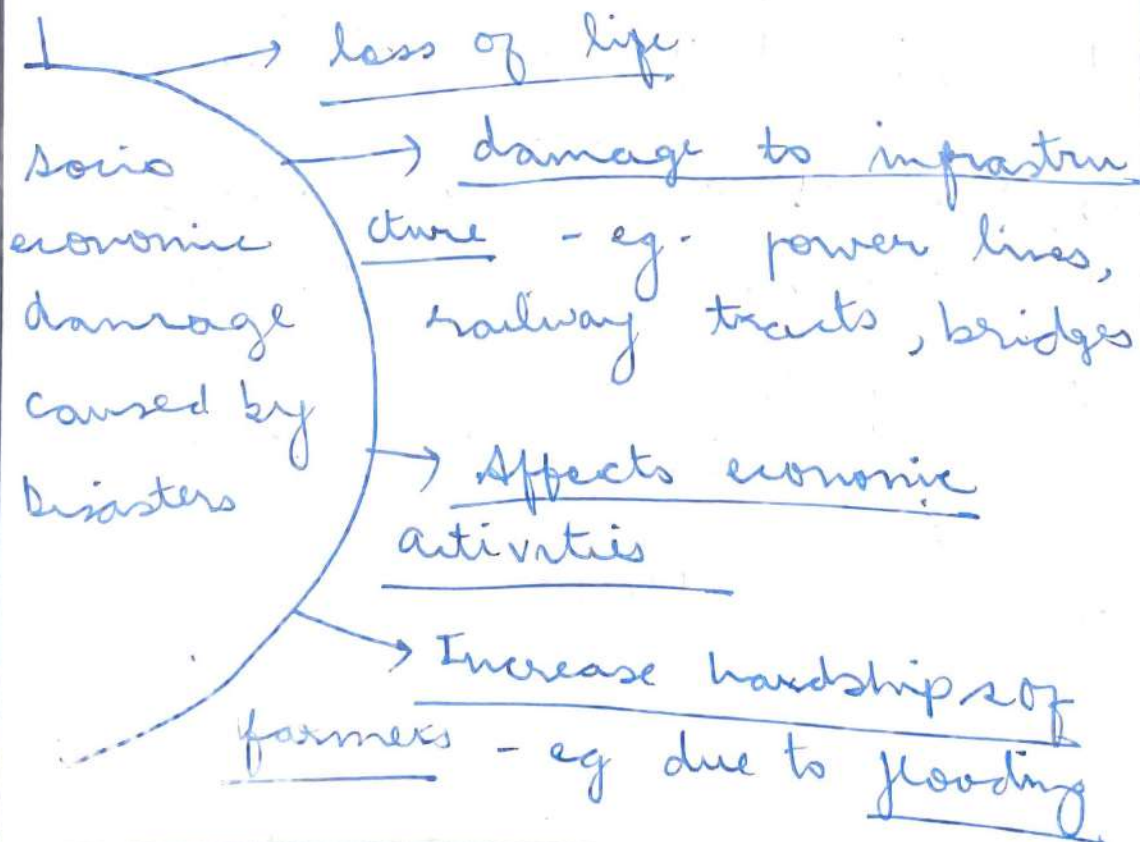 loss of life
socio
economic
damage
caused by
Disasters
damage to infrastru
cture - eg - power lines,
railway tracts, bridges
Affects economic
activities
Increase hardships of
farmers - eg due to flooding